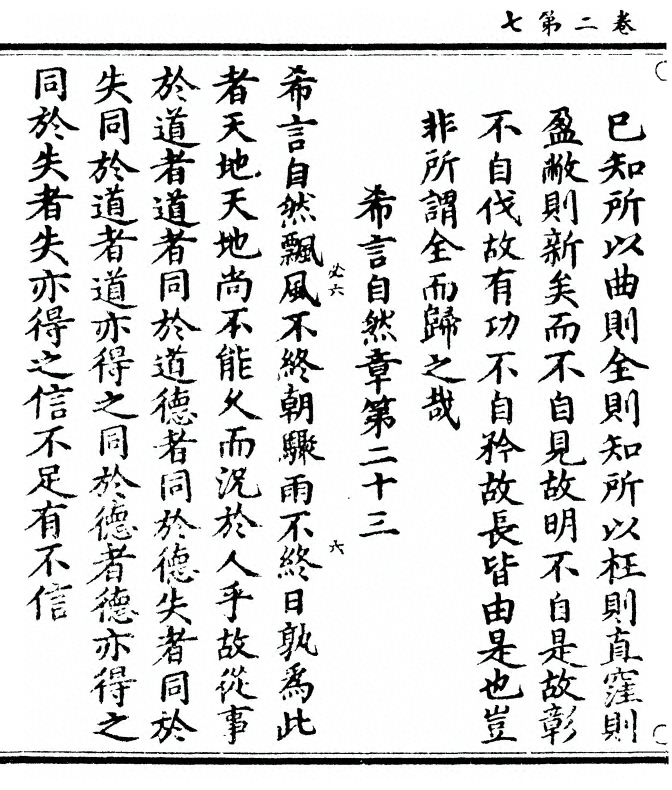 卷二第七
巳知所以曲則全則知所以枉則直窪則
盈敝則新矣而不自見故明不自是故彰
不自伐故有功不自矜故長皆由是也豈
非所謂全而歸之哉
希言自然章第二十三
希言自然飄風不終朝驟雨不終日孰爲此
者天地天地尚不能久而況於人乎故從事
於道者道者同於道德者同於德失者同於
失同於道者道亦得之同於德者德亦得之
同於失者失亦得之信不足有不信
六
六